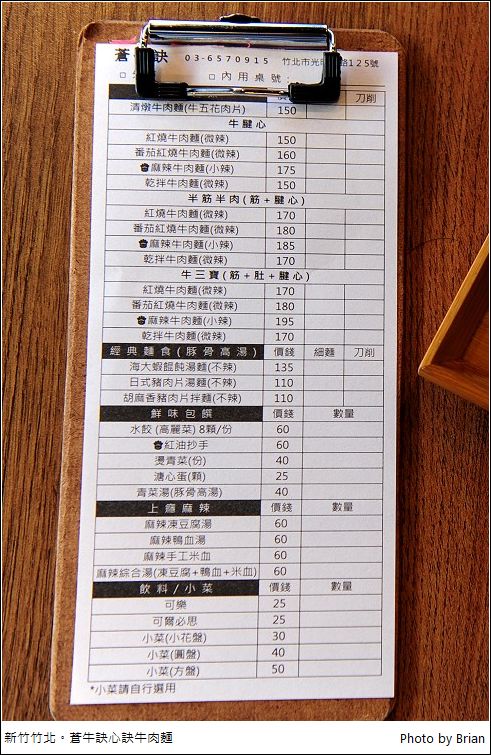 蒼 訣 03-6570915 竹北市光 路125號
□ □ 內用 桌號：
價 刀削
清燉牛肉麵(牛五花肉片) 150
牛腱心
紅燒牛肉麵(微辣) 150
番茄紅燒牛肉麵(微辣) 160
麻辣牛肉麵(小辣) 175
乾拌牛肉麵(微辣) 150
半筋半肉(筋+腱心)
紅燒牛肉麵(微辣) 170
番茄紅燒牛肉麵(微辣) 180
麻辣牛肉麵(小辣) 185
乾拌牛肉麵(微辣) 170
牛三寶(筋+肚+腱心)
紅燒牛肉麵(微辣) 170
番茄紅燒牛肉麵(微辣) 180
麻辣牛肉麵(小辣) 195
乾拌牛肉麵(微辣) 170
經典麵食(豚骨高湯) 價錢 細麵 刀削
海大蝦餛飩湯麵(不辣) 135
日式豬肉片湯麵(不辣) 110
胡麻香豬肉片拌麵(不辣) 110
鮮味包饌 價錢 數量
水餃(高麗菜)8顆/份 60
紅油抄手 60
燙青菜(份) 40
溏心蛋(顆) 25
青菜湯(豚骨高湯) 40
上癮麻辣 價錢 數量
麻辣凍豆腐湯 60
麻辣鴨血湯 60
麻辣手工米血 60
麻辣綜合湯(凍豆腐+鴨血+米血) 60
飲料/小菜 價錢 數量
可樂 25
可爾必思 25
小菜(小花盤) 30
小菜(圓盤) 40
小菜(方盤) 50
*小菜請自行選用
新竹竹北。蒼牛訣心訣牛肉麵 Photo by Brian